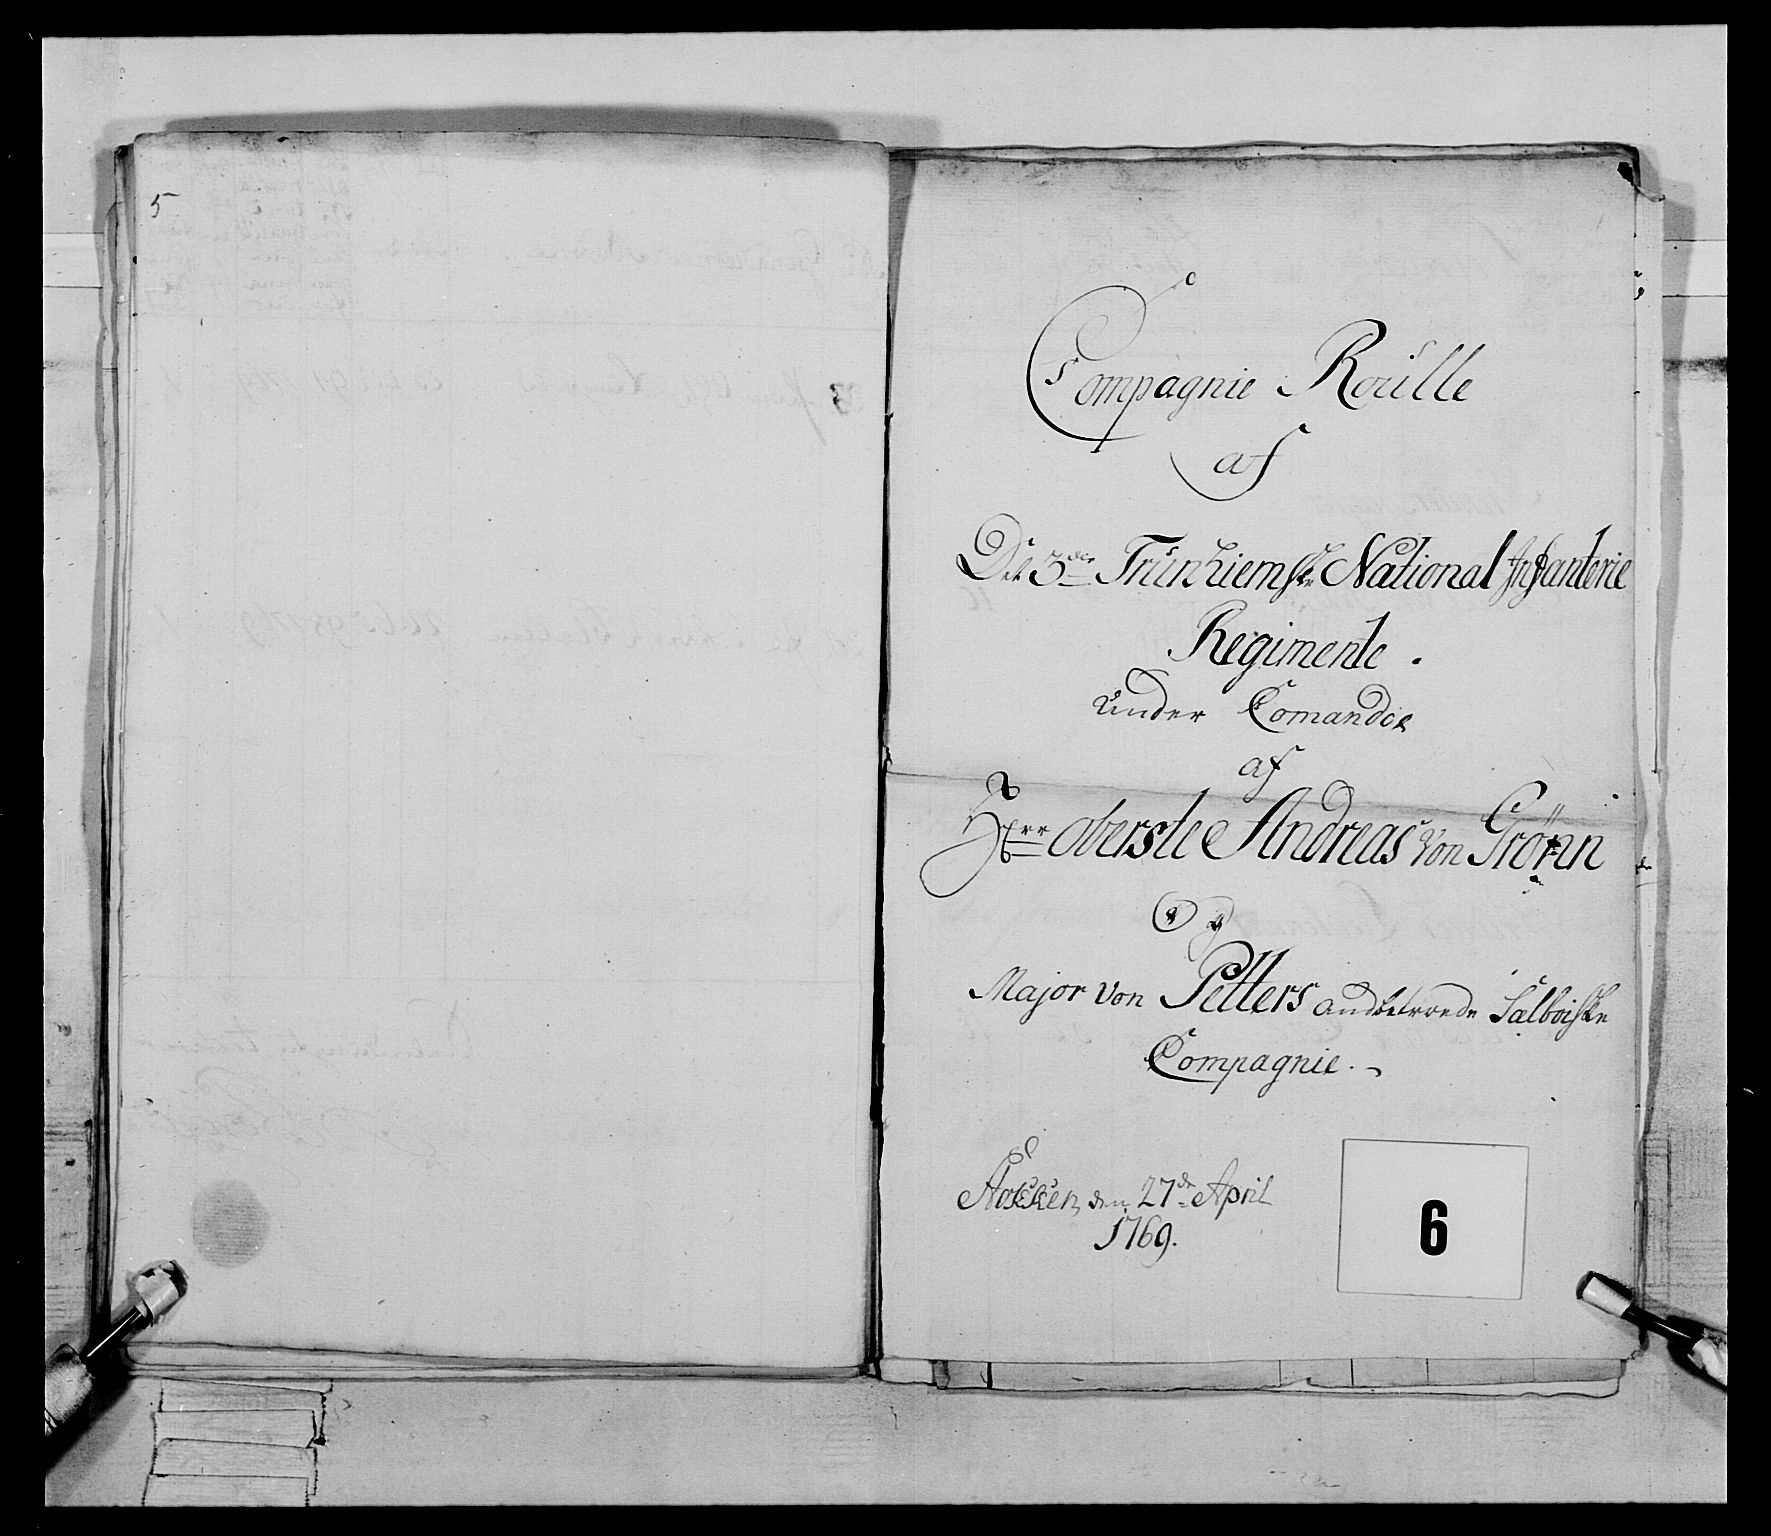 5
Compagnie Roulle
af
Det 3de Trünhiemske National Infanterie
Regimente.
Under Comando
af
Herr oberste Andreas von Grönn
Og
Major von Petters andbetroede Sælboiske
Compagnie.
den 27de April
1769.
6